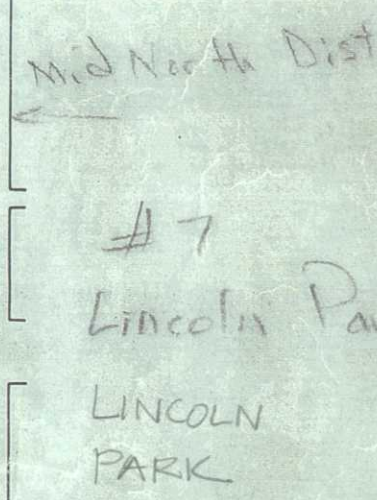 Mid North Dist
#7
Lincoln Pa
LINCOLN
PARK